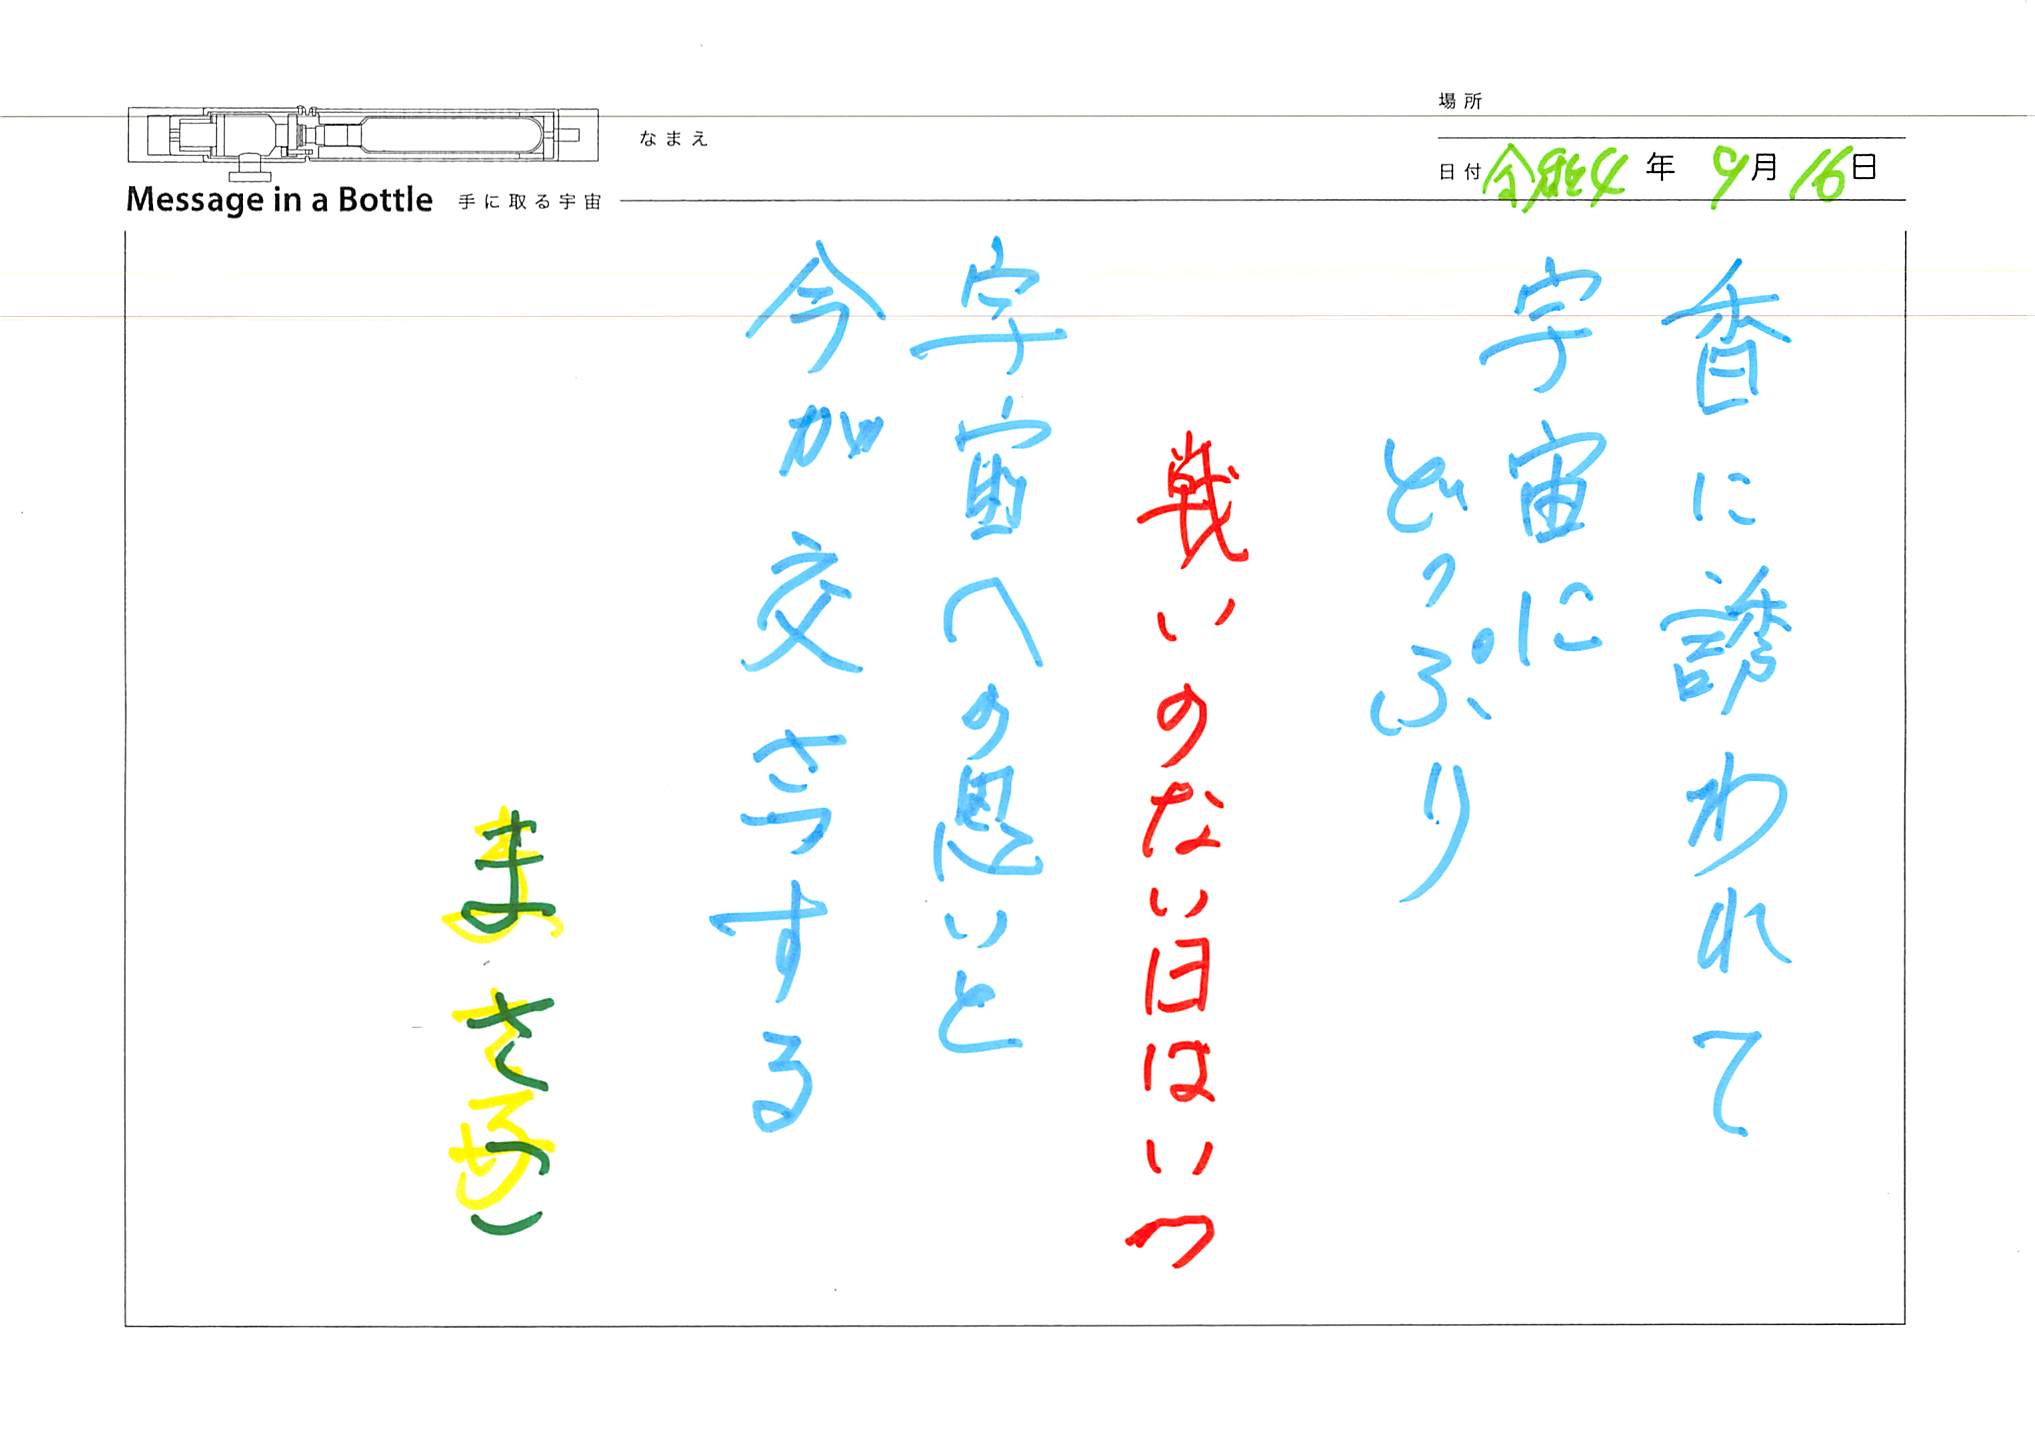 場所
なまえ
日付 令和4年 9月16日
Message in a Bottle 手に取る宇宙
香に誘われて
宇宙に
どっぷり
戦いのない日はいつ
宇宙への思いと
今が交さつする
まさ